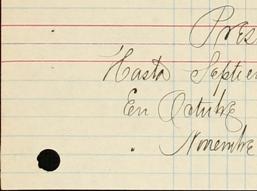 Pres
Hasta Septie
En Octubre
" Novembre